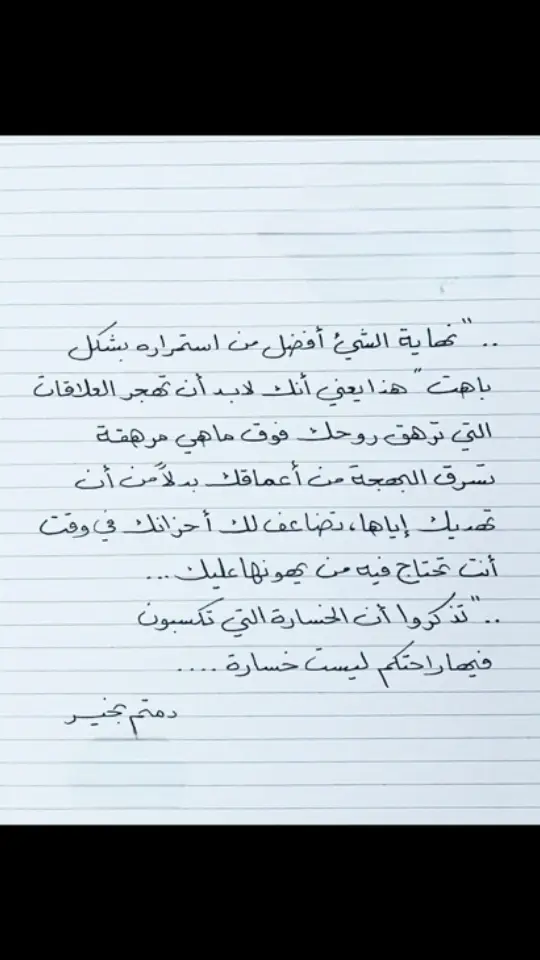 .. "نهاية الشيئ أفضل من استمراره بشكل
باهت" هذا يعني أنك لابد أن تهجر العلاقات
التي ترهق روحك فوق ماهي مرهقة
تسرق البهجة من أعماقك بدلاً من أن
تهديك إياها، تضاعف لك أحزانك في وقت
أنت تحتاج فيه من يهونها عليك...
.. "تذكروا أن الخسارة التي تكسبون
فيها راحتكم ليست خسارة ....
دمتم بخير